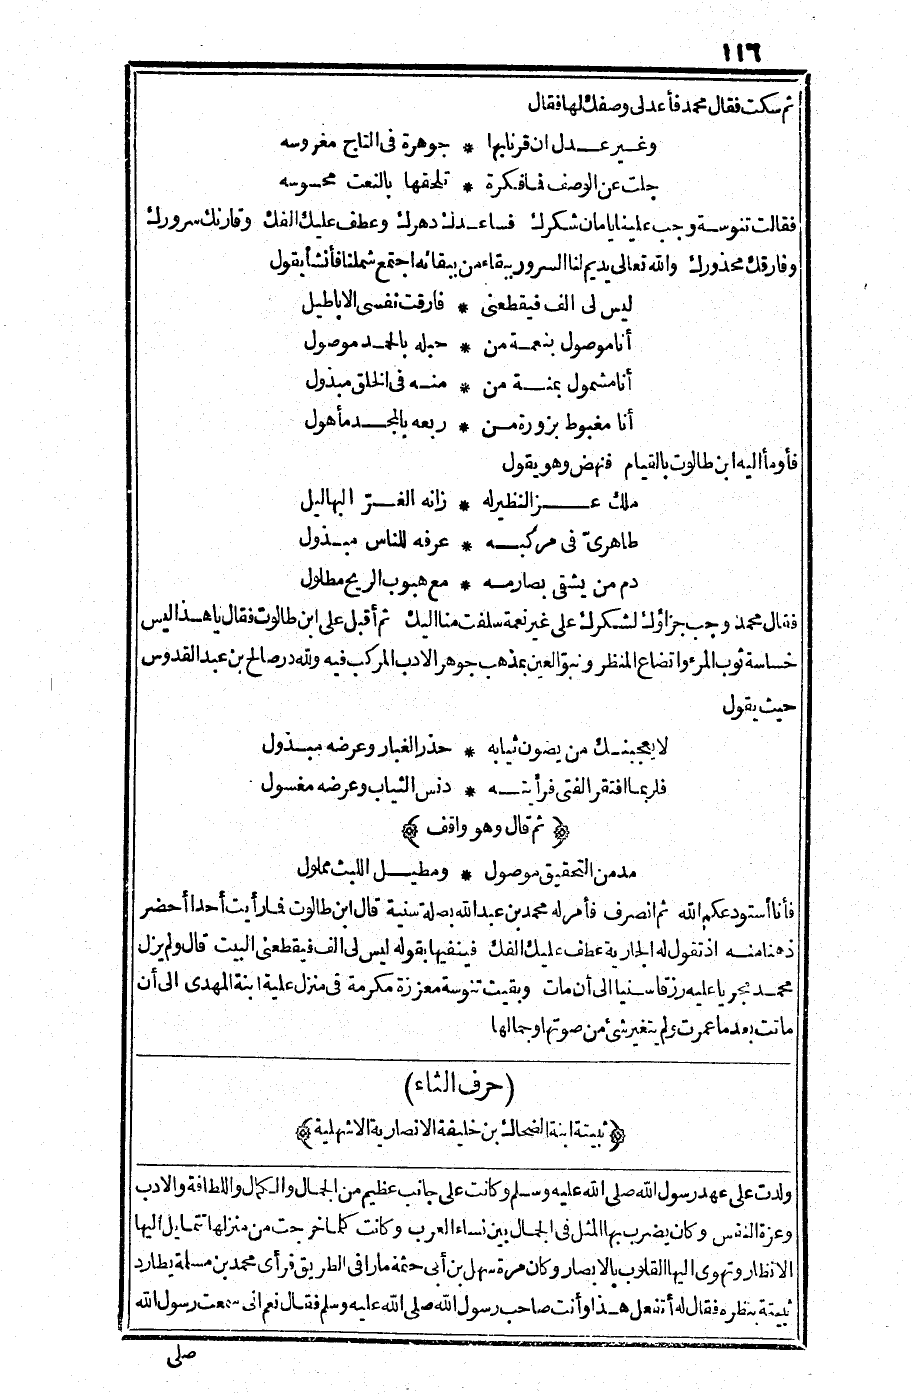 ١١٦
ثم سكت فقال محمد فأعد لى وصفك لها فقال
وغير عدل ان قرنا بها * جوهرة فى التاج مغروسه
جلت عن الوصف فما فكرة * تلحقها بالنعت محسوسه
فقالت تنوسة وجب علينا يا مان شكرك فساعدك دهرك وعطف عليك الفك وقارنك سرورك
وفارقك محذورك والله تعالى يديم لنا السرور ببقاء من ببقائه اجتمع شملنا فأنشأ يقول
ليس لى الف فيقطعنى * فارقت نفسى الاباطيل
أنا موصول بنعمة من * حبله بالحمد موصول
أنا مشمول بمنة من * منه فى الخلق مبذول
أنا مغبوط بزورة من * ربعه بالمجد مأهول
فأومأ اليه ابن طالوت بالقيام فنهض وهو يقول
ملك عز النظير له * زانه الغر البهاليل
طاهرىّ فى مركبه * عرفه للناس مبذول
دم من يشقى بصارمه * مع هبوب الريح مطلول
فقال محمد وجب جزاؤك لشكرك على غير نعمة سلفت منا اليك ثم أقبل على ابن طالوت فقال يا هذا ليس
خساسة ثوب المرء واتضاع المنظر ونبو العين بمذهب جوهر الادب المركب فيه ولله در صالح بن عبد القدوس
حيث يقول
لا يعجبنك من يصون ثيابه * حذر الغبار وعرضه مبذول
فلربما افتقر الفتى فرأيته * دنس الثياب وعرضه مغسول
﴿ ثم قال وهو واقف ﴾
مدمن التحقيق موصول * ومطيل اللبث مملول
فأنا أستودعكم الله ثم انصرف فأمر له محمد بن عبد الله بصلة سنية قال ابن طالوت فما رأيت أحدا أحضر
ذهنا منه اذ تقول له الجارية عطف عليك الفك فينفيها بقوله ليس لى الف فيقطعنى البيت قال ولم يزل
محمد يجريا عليه رزقا سنيا الى أن مات وبقيت تنوسة معززة مكرمة فى منزل علية ابنة المهدى الى أن
ماتت بعد ما عمرت ولم يتغير شئ من صوتها وجمالها
(حرف الثاء)
﴿ ثبيتة ابنة الضحاك بن خليفة الانصارية الاشهلية ﴾
ولدت على عهد رسول الله صلى الله عليه وسلم وكانت على جانب عظيم من الجمال والكمال واللطافة والادب
وعزة النفس وكان يضرب بها المثل فى الجمال بين نساء العرب وكانت كلما خرجت من منزلها تتمايل اليها
الانظار وتهوى اليها القلوب بالابصار وكان مرة سهل بن أبى حثمة مارا فى الطريق فرأى محمد بن مسلمة يطارد
ثبيتة بنظره فقال له أتفعل هذا وأنت صاحب رسول الله صلى الله عليه وسلم فقال نعم انى سمعت رسول الله
صلى